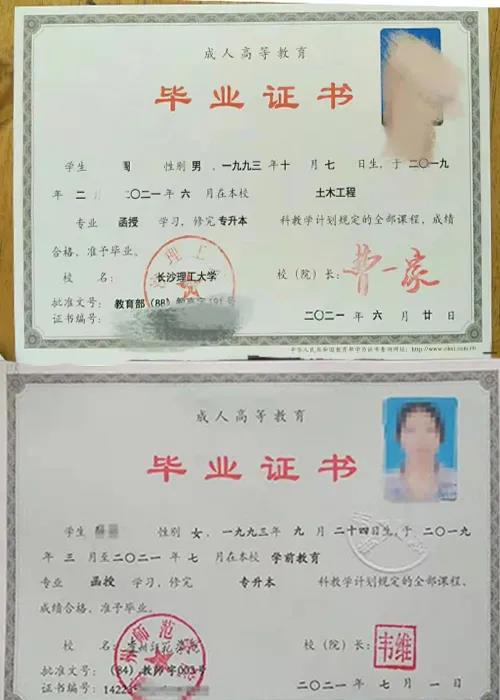 成人高等教育
毕业证书
学生 周 性别 男，一九九三年 十 月 七 日生，于 二〇一九
年 二 二〇二一 年 六 月在本校 土木工程
专业 函授 学习，修完 专升本 科教学计划规定的全部课程，成绩
合格，准予毕业。
校 名： 长沙理工大学 校（院）长：
批准文号： 教育部（88）
证书编号： 二〇二一 年 六 月 廿 日
中华人民共和国教育部学历证书查询网址：http://www.chsi.com.cn
成人高等教育
毕业证书
学生 性别 女，一九九三年 九 月 二十四日生，于 二〇一九
年 三 月至二〇二一 年 七 月在本校 学前教育
专业 函授 学习，修完 专升本 科教学计划规定的全部课程，
成绩合格，准予毕业。
师范
校 名： 校（院）长： 韦维
批准文号：（84）教师字003号
证书编号：1422 二〇二一 年 七 月 一 日